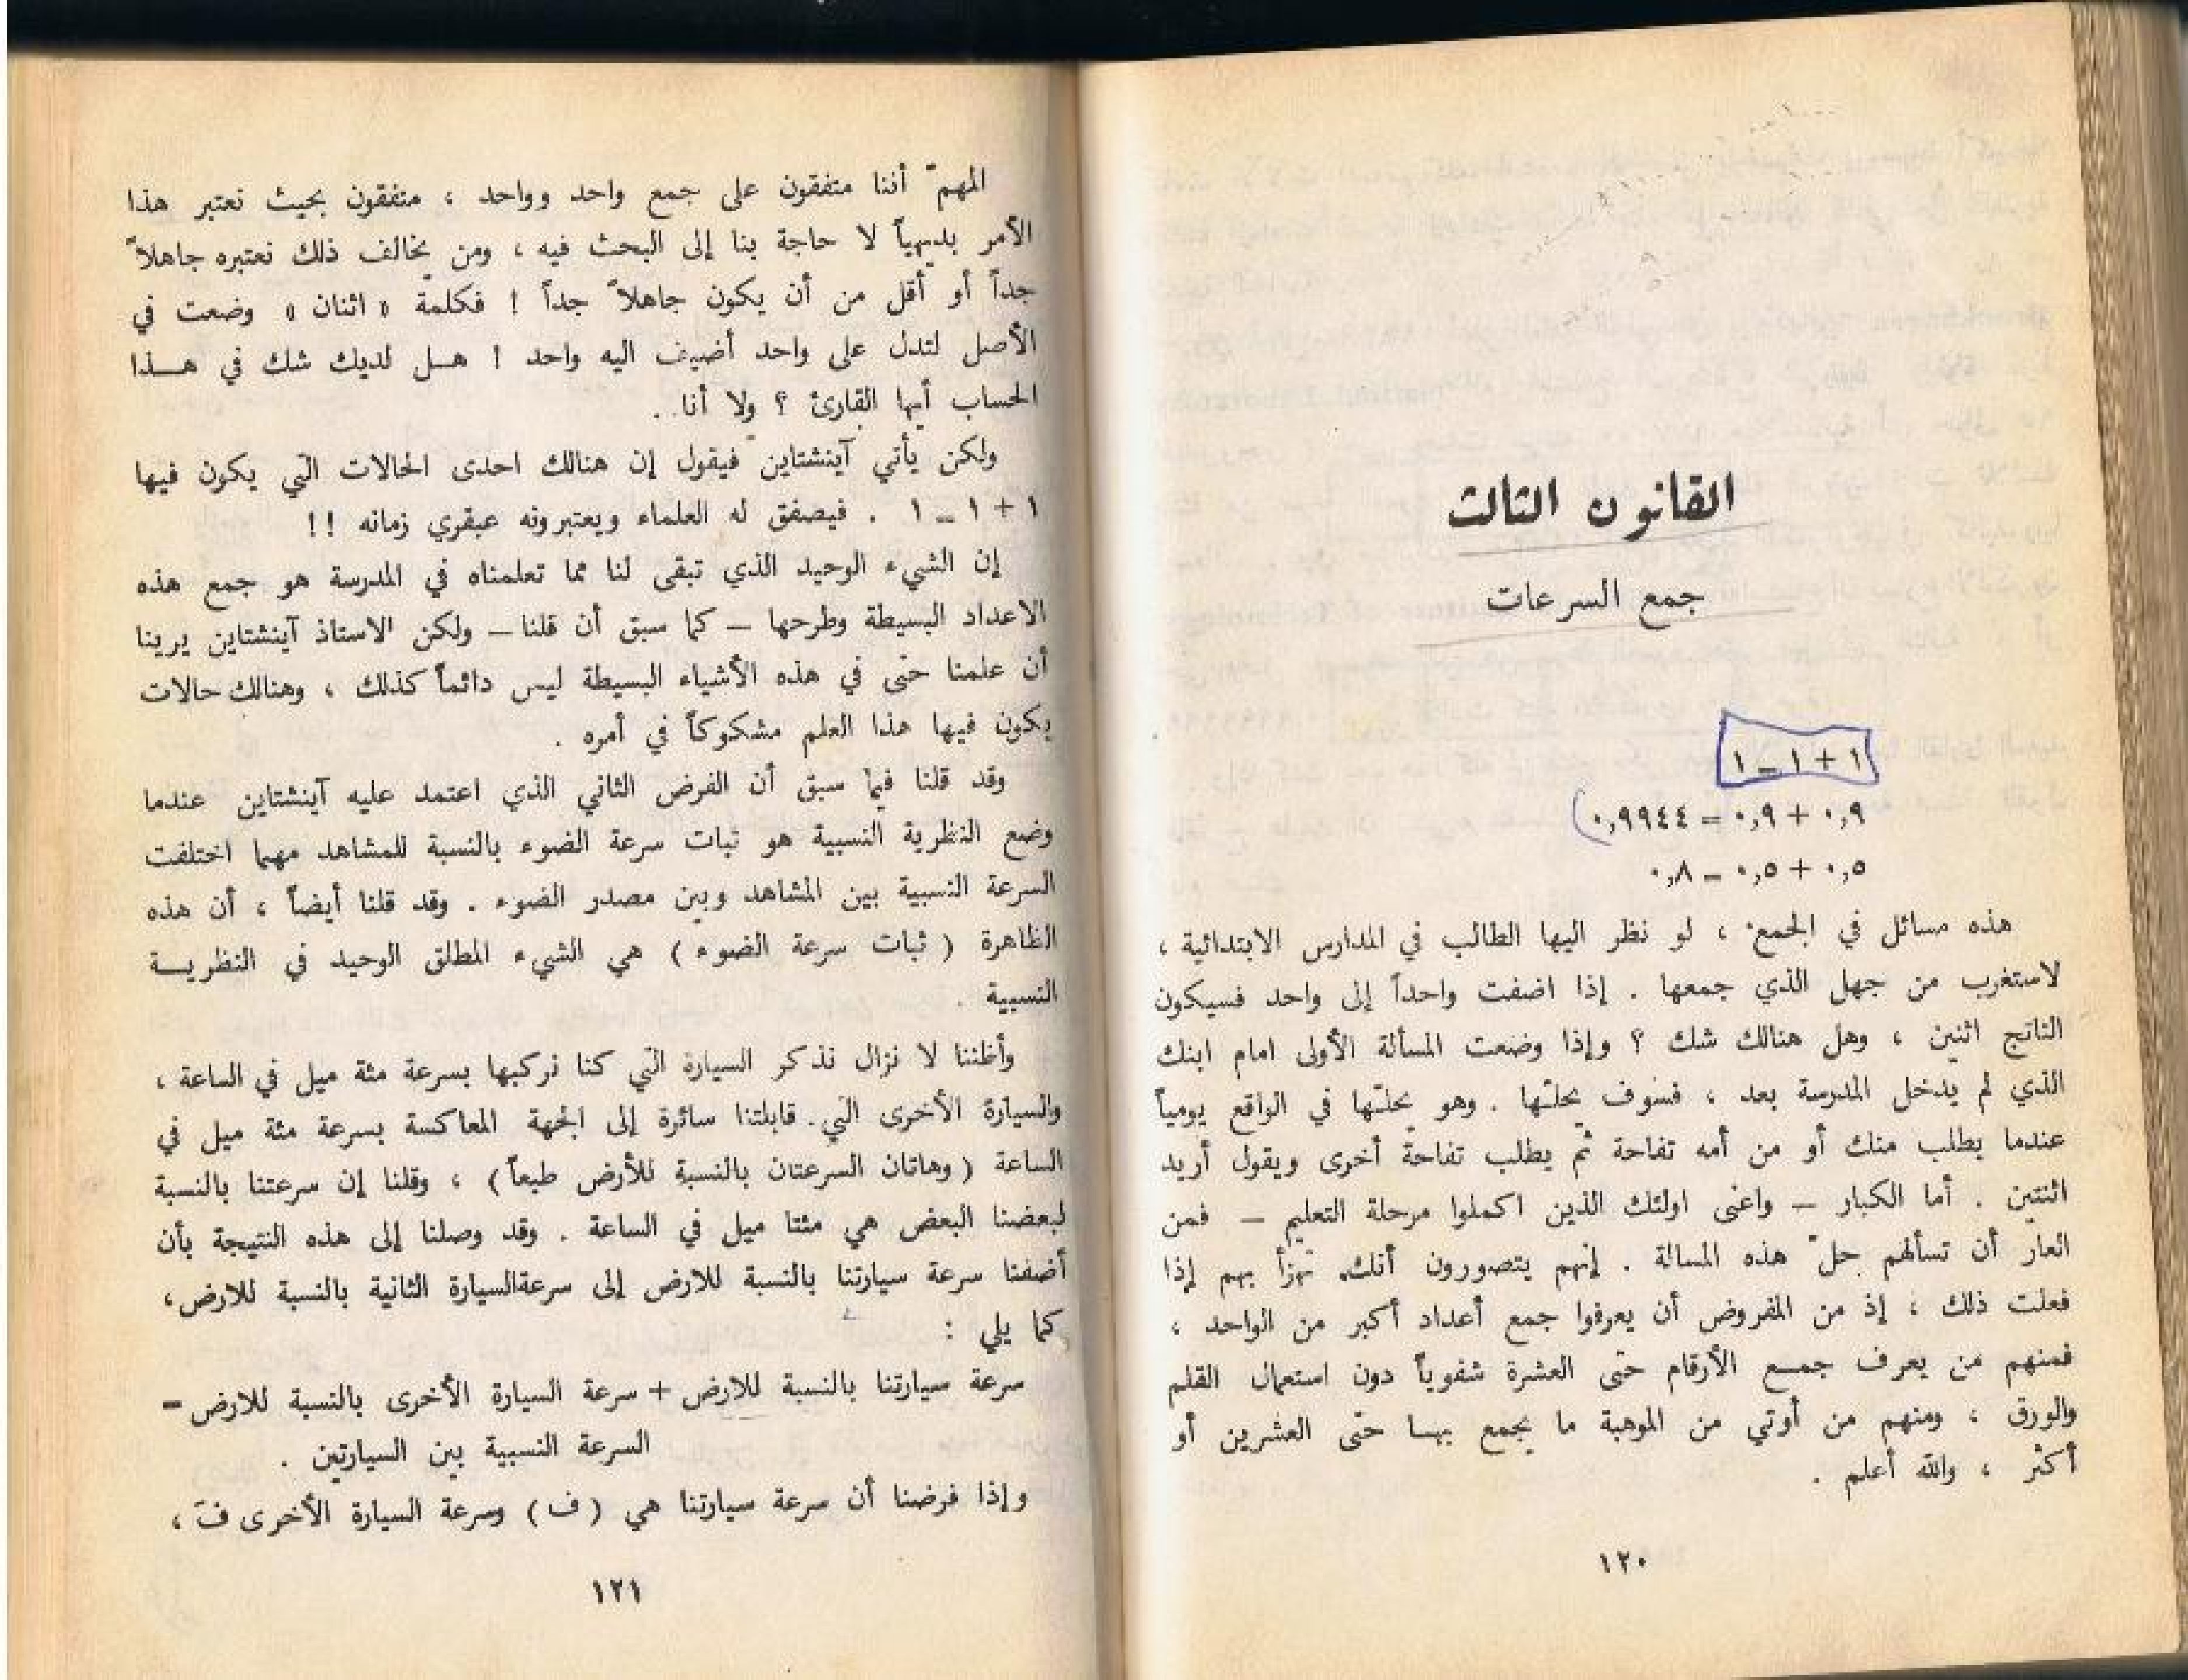 القانون الثالث
جمع السرعات
١ + ١ = ١
٠,٩ + ٠,٩ = ٠,٩٩٤٤
٠,٥ + ٠,٥ = ٠,٨
هذه مسائل في الجمع ، لو نظر اليها الطالب في المدارس الابتدائية ،
لاستغرب من جهل الذي جمعها . إذا اضفت واحداً إلى واحد فسيكون
الناتج اثنين ، وهل هنالك شك ؟ وإذا وضعت المسألة الأولى امام ابنك
الذي لم يدخل المدرسة بعد ، فسوف يحلّها . وهو يحلّها في الواقع يومياً
عندما يطلب منك أو من أمه تفاحة ثم يطلب تفاحة أخرى ويقول أريد
اثنتين . أما الكبار – واعنى اولئك الذين اكملوا مرحلة التعليم – فمن
العار أن تسألهم حلّ هذه المسالة . إنهم يتصورون أنك تهزأ بهم إذا
فعلت ذلك ، إذ من المفروض أن يعرفوا جمع أعداد أكبر من الواحد ،
فمنهم من يعرف جمع الأرقام حتى العشرة شفوياً دون استعمال القلم
والورق ، ومنهم من أوتي من الموهبة ما يجمع بها حتى العشرين أو
أكثر ، والله أعلم .
١٢٠
المهمّ أننا متفقون على جمع واحد وواحد ، متفقون بحيث نعتبر هذا
الأمر بديهياً لا حاجة بنا إلى البحث فيه ، ومن يخالف ذلك نعتبره جاهلاً
جداً أو أقل من أن يكون جاهلاً جداً ! فكلمة « اثنان » وضعت في
الأصل لتدل على واحد أضيف اليه واحد ! هل لديك شك في هذا
الحساب أيها القارئ ؟ ولا أنا..
ولكن يأتي آينشتاين فيقول إن هنالك احدى الحالات التي يكون فيها
١ + ١ = ١ . فيصفق له العلماء ويعتبرونه عبقري زمانه !!
إن الشيء الوحيد الذي تبقى لنا مما تعلمناه في المدرسة هو جمع هذه
الاعداد البسيطة وطرحها – كما سبق أن قلنا – ولكن الاستاذ آينشتاين يرينا
أن علمنا حتى في هذه الأشياء البسيطة ليس دائماً كذلك ، وهنالك حالات
يكون فيها هذا العلم مشكوكاً في أمره .
وقد قلنا فيما سبق أن الفرض الثاني الذي اعتمد عليه آينشتاين عندما
وضع النظرية النسبية هو ثبات سرعة الضوء بالنسبة للمشاهد مهما اختلفت
السرعة النسبية بين المشاهد وبين مصدر الضوء . وقد قلنا أيضاً ، أن هذه
الظاهرة ( ثبات سرعة الضوء ) هي الشيء المطلق الوحيد في النظرية
النسبية .
وأظننا لا نزال نذكر السيارة التي كنا نركبها بسرعة مئة ميل في الساعة ،
والسيارة الأخرى التي قابلتنا سائرة إلى الجهة المعاكسة بسرعة مئة ميل في
الساعة ( وهاتان السرعتان بالنسبة للأرض طبعاً ) ، وقلنا إن سرعتنا بالنسبة
لبعضنا البعض هي مئتا ميل في الساعة . وقد وصلنا إلى هذه النتيجة بأن
أضفنا سرعة سيارتنا بالنسبة للارض إلى سرعة السيارة الثانية بالنسبة للارض،
كما يلي :
سرعة سيارتنا بالنسبة للارض + سرعة السيارة الأخرى بالنسبة للارض =
السرعة النسبية بين السيارتين .
وإذا فرضنا أن سرعة سيارتنا هي ( ف ) وسرعة السيارة الأخرى فَ ،
١٢١